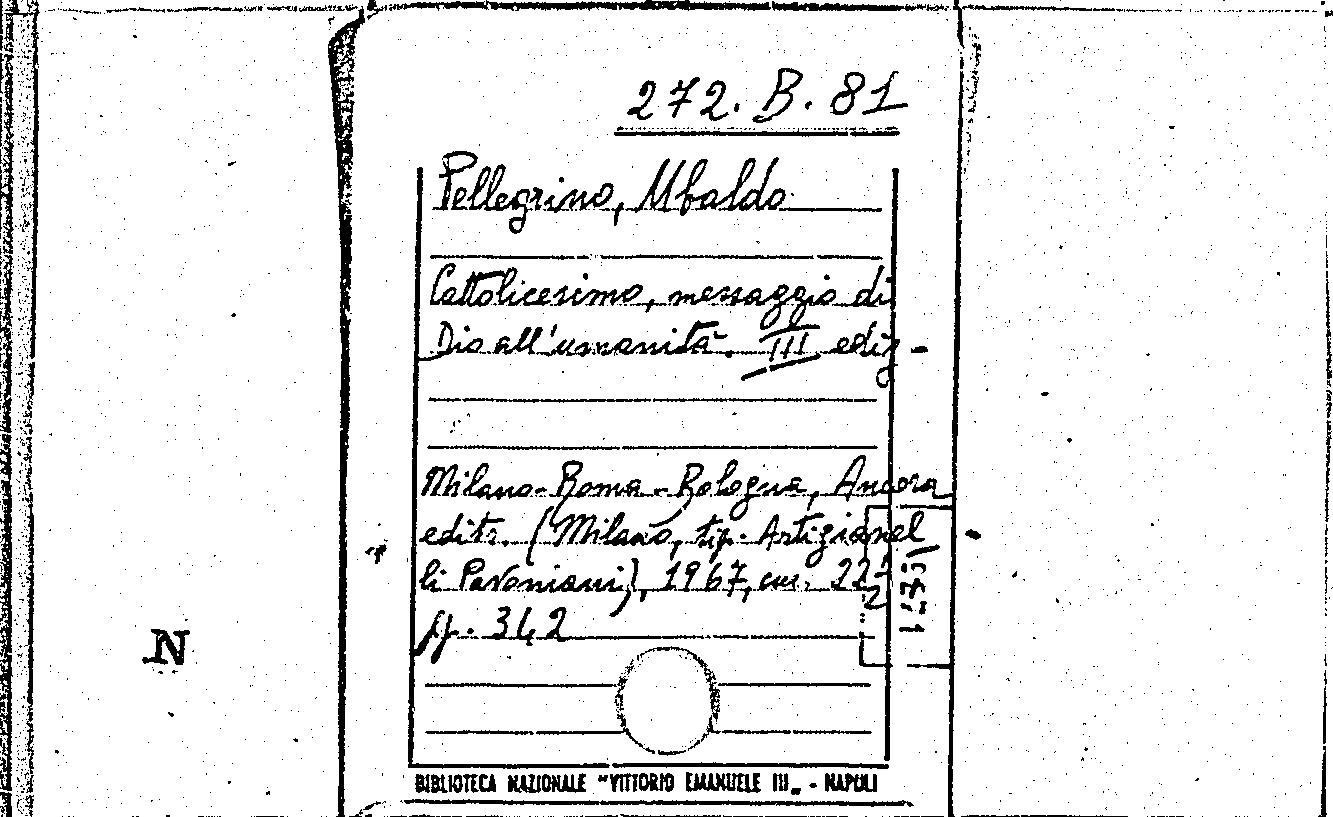 272. B. 81
Pellegrino, Ubaldo
Cattolicesimo, messaggio di
Dio all'umanità. III ediz
Milano-Roma-Bologna, Ancora
editr. (Milano, tip. Artigianel
li Pavoniani), 1967, cm. 22
pp. 342
N
BIBLIOTECA NAZIONALE "VITTORIO EMANUELE III„ - NAPOLI